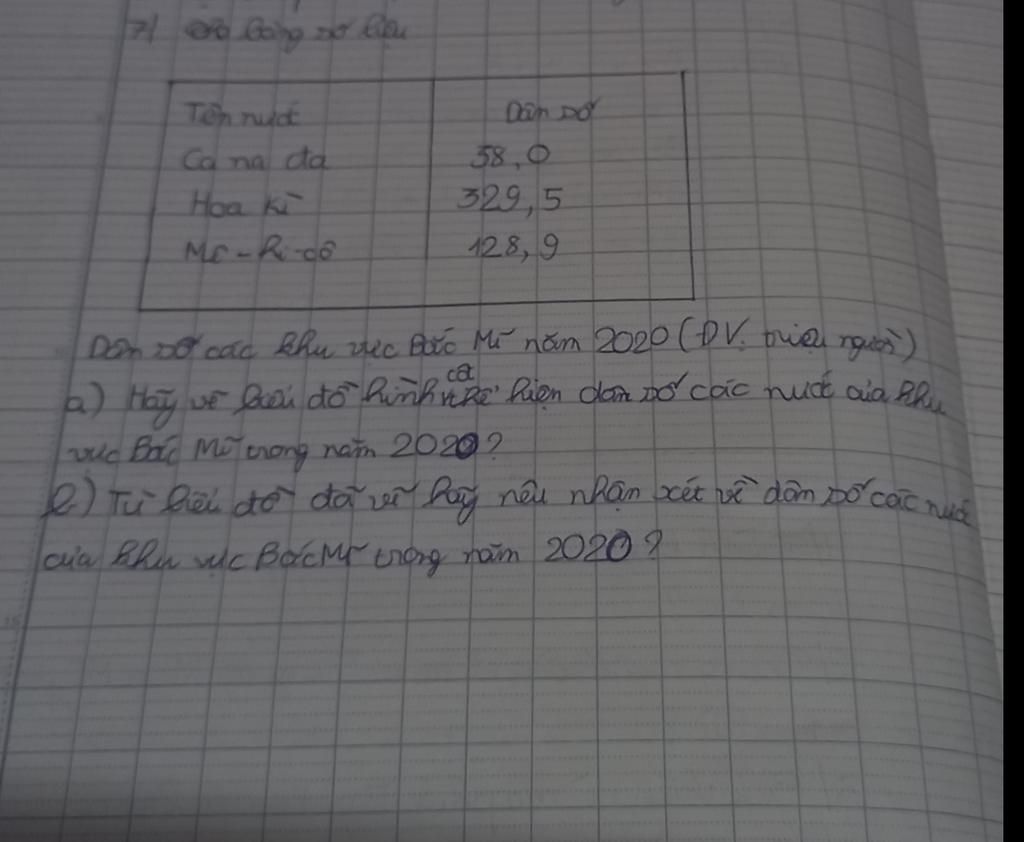 7) Cho bảng số liệu
Tên nước Dân số
Ca na da 38,0
Hoa Kì 329,5
Mê-hi-cô 128,9
Dân số các khu vực Bắc Mĩ năm 2020 (ĐV. triệu người)
a) Hãy vẽ biểu đồ hình cột thể hiện dân số các nước của khu
vực Bắc Mĩ trong năm 2020?
b) Từ biểu đồ đã vẽ hãy nêu nhận xét về dân số các nước
của khu vực Bắc Mĩ trong năm 2020?